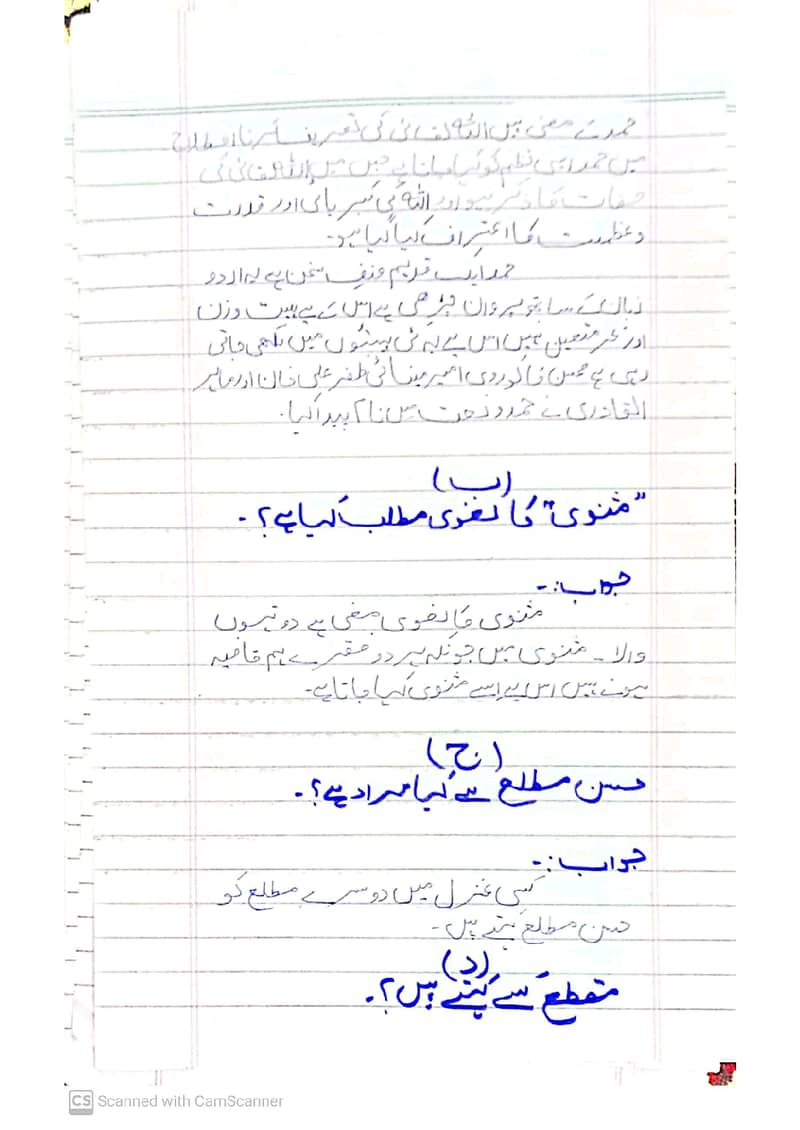 حمد کے معنی ہیں اللہ تعالیٰ کی تعریف کرنا اصطلاح
میں حمد ایسی نظم کو کہا جاتا ہے جس میں اللہ تعالیٰ کی
صفات کا ذکر ہو اور اللہ کی کبریائی اور قدرت
و عظمت کا اعتراف کیا گیا ہو۔
حمد ایک قدیم صنف سخن ہے یہ اردو
زبان کے ساتھ پروان چڑھی ہے اس کے لیے ہیت وزن
اور بحر متعین نہیں اس لیے یہ کئی ہیتوں میں لکھی جاتی
رہی ہے محسن کاکوروی امیر مینائی ظفر علی خان اور ماہر
القادری نے حمد و نعت میں نام پیدا کیا۔
(ب)
"مثنوی" کا لغوی مطلب کیا ہے؟۔
جواب:۔
مثنوی کا لغوی معنی ہے دو تہوں
والا۔ مثنوی میں چونکہ ہر دو مصرے ہم قافیہ
ہوتے ہیں اس لیے اسے مثنوی کہا جاتا ہے۔
(ج)
حسن مطلع سے کیا مراد ہے؟۔
جواب:۔
کسی غزل میں دوسرے مطلع کو
حسن مطلع کہتے ہیں۔
(د)
مقطع کسے کہتے ہیں؟۔
CS Scanned with CamScanner